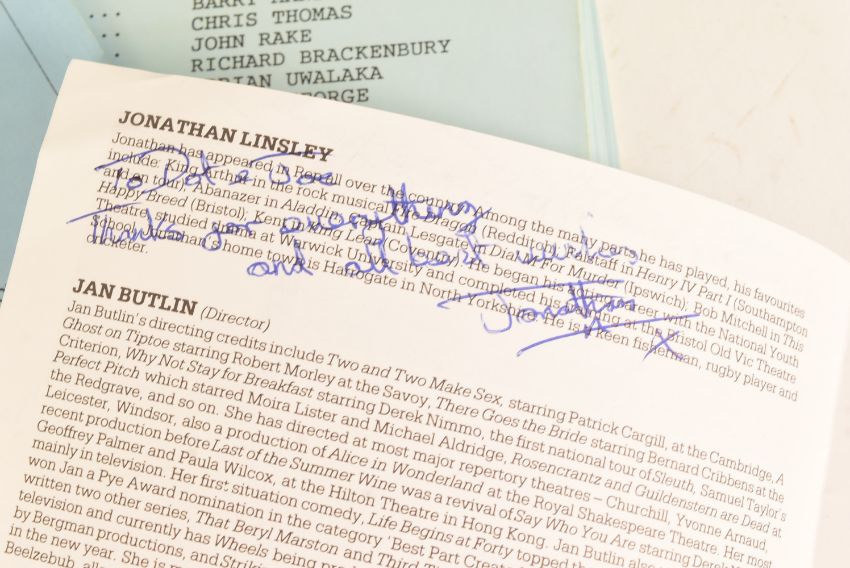 BARRY
CHRIS THOMAS
JOHN RAKE
RICHARD BRACKENBURY
UWALAKA
GEORGE
JONATHAN LINSLEY
Jonathan has appeared in Rep all over the country. Among the many parts he has played, his favourites
include: King Arthur in the rock musical Dragon (Redditch), Falstaff in Henry IV Part I (Southampton
and on tour), Abanazer in Aladdin, Captain Lesgate Dial M For Murder (Ipswich); Bob Mitchell in This
Happy Breed (Bristol), Kent in King Lear (Coventry). He began his acting career with the National Youth
Theatre, studied Drama at Warwick University and completed his training at the Bristol Old Vic Theatre
School. Jonathan's home town is Harrogate in North Yorkshire. He is a keen fisherman, rugby player and
cricketer.
To Dot & Joe
Thanks for everything
and all best wishes
Jonathan
X
JAN BUTLIN (Director)
Jan Butlin's directing credits include Two and Two Make Sex, starring Patrick Cargill, at the Cambridge, A
Ghost on Tiptoe starring Robert Morley at the Savoy, There Goes the Bride starring Bernard Cribbens at the
Criterion, Why Not Stay for Breakfast starring Derek Nimmo, the first national tour of Sleuth, Samuel Taylor's
Perfect Pitch which starred Moira Lister and Michael Aldridge, Rosencrantz and Guildenstern are Dead at
the Redgrave, and so on. She has directed at most major repertory theatres – Churchill, Yvonne Arnaud,
Leicester, Windsor, also a production of Alice in Wonderland at the Royal Shakespeare Theatre. Her most
recent production before Last of the Summer Wine was a revival of Say Who You Are starring Derek
Geoffrey Palmer and Paula Wilcox, at the Hilton Theatre in Hong Kong. Jan Butlin also
mainly in television. Her first situation comedy, Life Begins at Forty topped the
won Jan a Pye Award nomination in the category 'Best Part
written two other series, That Beryl Marston and Third
television and currently has Wheels being
by Bergman productions, and
in the new year. She is
Beelzebub,